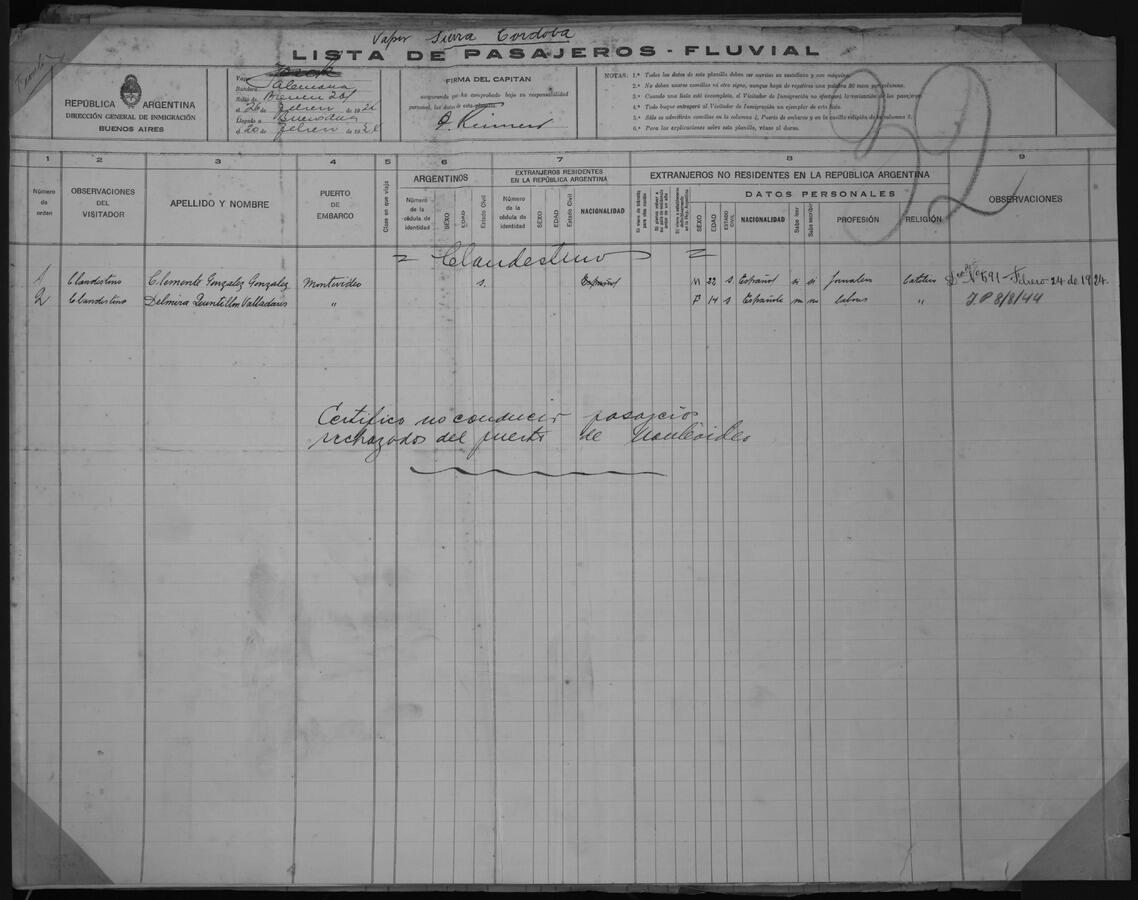 Vapor Sierra Cordoba
LISTA DE PASAJEROS - FLUVIAL
REPÚBLICA ARGENTINA
DIRECCIÓN GENERAL DE INMIGRACIÓN
BUENOS AIRES
Vapor
Bandera Alemana
Salido de Bremen
el 26 de
Llegado a
el 20 de
FIRMA DEL CAPITAN
asegurando que ha comprobado bajo su responsabilidad
personal, los datos de esta planilla
NOTAS: 1.ª Todos los datos de esta planilla deben ser escritos en castellano y con máquina.
2.ª No deben usarse comillas ni otro signo, aunque haya de repetirse una palabra 50 veces por columnas.
3.ª Cuando una lista esté incompleta, el Visitador de Inmigración no efectuará la revisación de los pasajeros.
4.ª Todo buque entregará al Visitador de Inmigración un ejemplar de esta lista.
5.ª Sólo se admitirán comillas en la columna 4, Puerto de embarco y en la casilla religión de la columna 8.
6.ª Para las explicaciones sobre esta planilla, véase al dorso.
32
1 2 3 4 5 6 7 8 9
Número de orden
OBSERVACIONES DEL VISITADOR
APELLIDO Y NOMBRE
PUERTO DE EMBARCO
Clase en que viaja
ARGENTINOS
Número de la cédula de identidad
SEXO
EDAD
Estado Civil
EXTRANJEROS RESIDENTES EN LA REPÚBLICA ARGENTINA
Número de la cédula de identidad
SEXO
EDAD
Estado Civil
NACIONALIDAD
EXTRANJEROS NO RESIDENTES EN LA REPÚBLICA ARGENTINA
DATOS PERSONALES
SEXO
EDAD
ESTADO CIVIL
NACIONALIDAD
Sabe leer
Sabe escribir
PROFESIÓN
RELIGIÓN
OBSERVACIONES
= Clandestino =
1 Clandestino Clemente Gonzalez Gonzalez Montevideo s. Español M 22 s. Español si si Jornalero Católico Nº 691 - Febrero 24 de 1924.
2 Clandestino Delmira Quintillon Valladares " F 14 s Española labores " J.P 8/8/44
Certifico no conducir pasajeros
rechazados del puerto de Montevideo